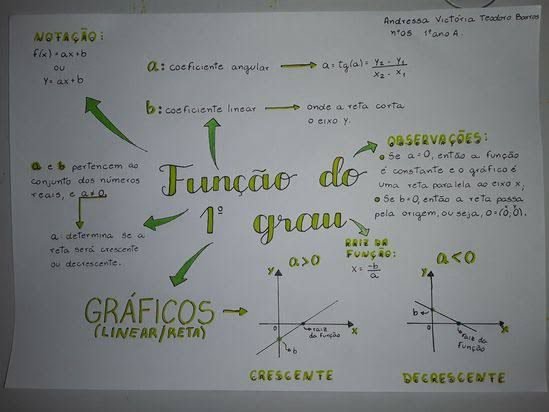 Andressa Victória Teodoro Barros
nº05 1º ano A.
NOTAÇÃO:
f(x) = ax+b
ou
y = ax+b
a: coeficiente angular → a = tg(a) = y₂ - y₁ / x₂ - x₁
b: coeficiente linear → onde a reta corta
o eixo y.
a e b pertencem ao
conjunto dos números
reais, e a≠0.
a: determina se a
reta será crescente
ou decrescente.
Função do
1º grau
OBSERVAÇÕES:
Se a=0, então a função
é constante e o gráfico é
uma reta paralela ao eixo x;
Se b=0, então a reta passa
pela origem, ou seja, 0=(0,0).
x y
RAIZ DA
FUNÇÃO:
x = -b/a
GRÁFICOS →
(LINEAR/RETA)
a>0
y
0
raiz
da função
x
b
CRESCENTE
a<0
y
b
0
x
raiz
da
função
DECRESCENTE